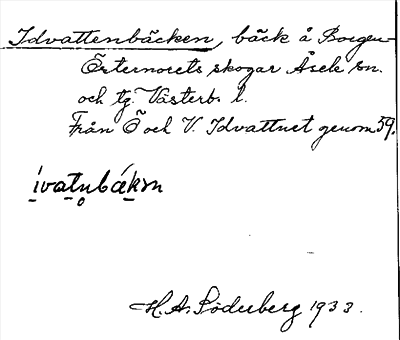 Idvattenbäcken, bäck å Borgen-
Örternorets skogar Åsele sn.
och tg. Västerb. l.
Från Ö och V. Idvattnet genom 59.
ívatnbákɱ
H. A. Söderberg 1933.